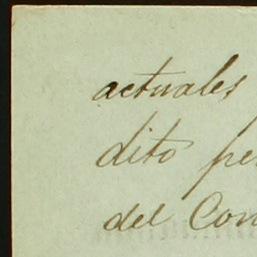 actuales
dito pe
del Con